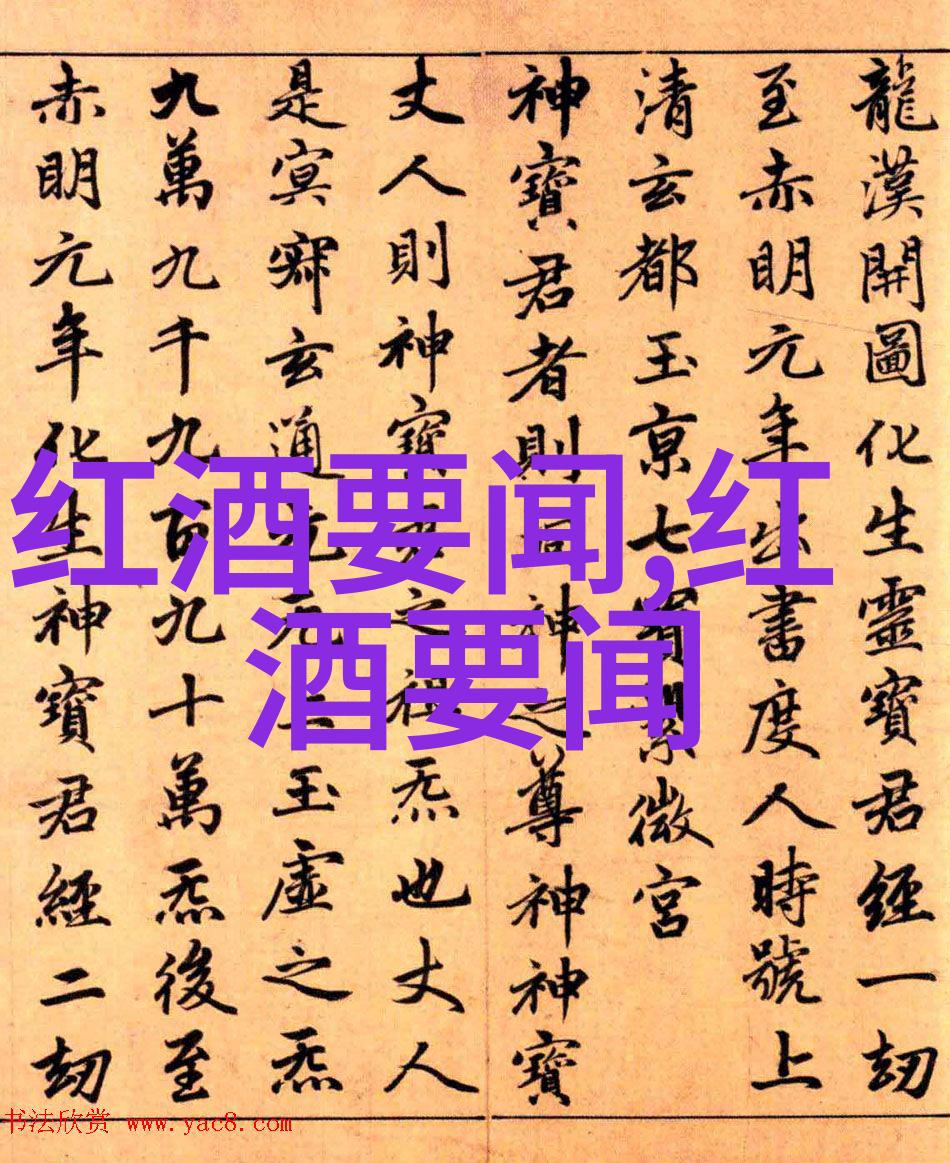 龍漢開圖化生靈寶君經一劫
至赤明元年出書度人時號上
清玄都玉京七寶紫微宮
神寶君者則洞神之尊神神寶
丈人則神寶君之祖炁也丈人
是冥寂玄通元无上玉虛之炁
九萬九千九百九十萬炁後至
赤明元年化生神寶君經二劫
红酒要闻,红
酒要闻
书法欣赏 www.yac8.com